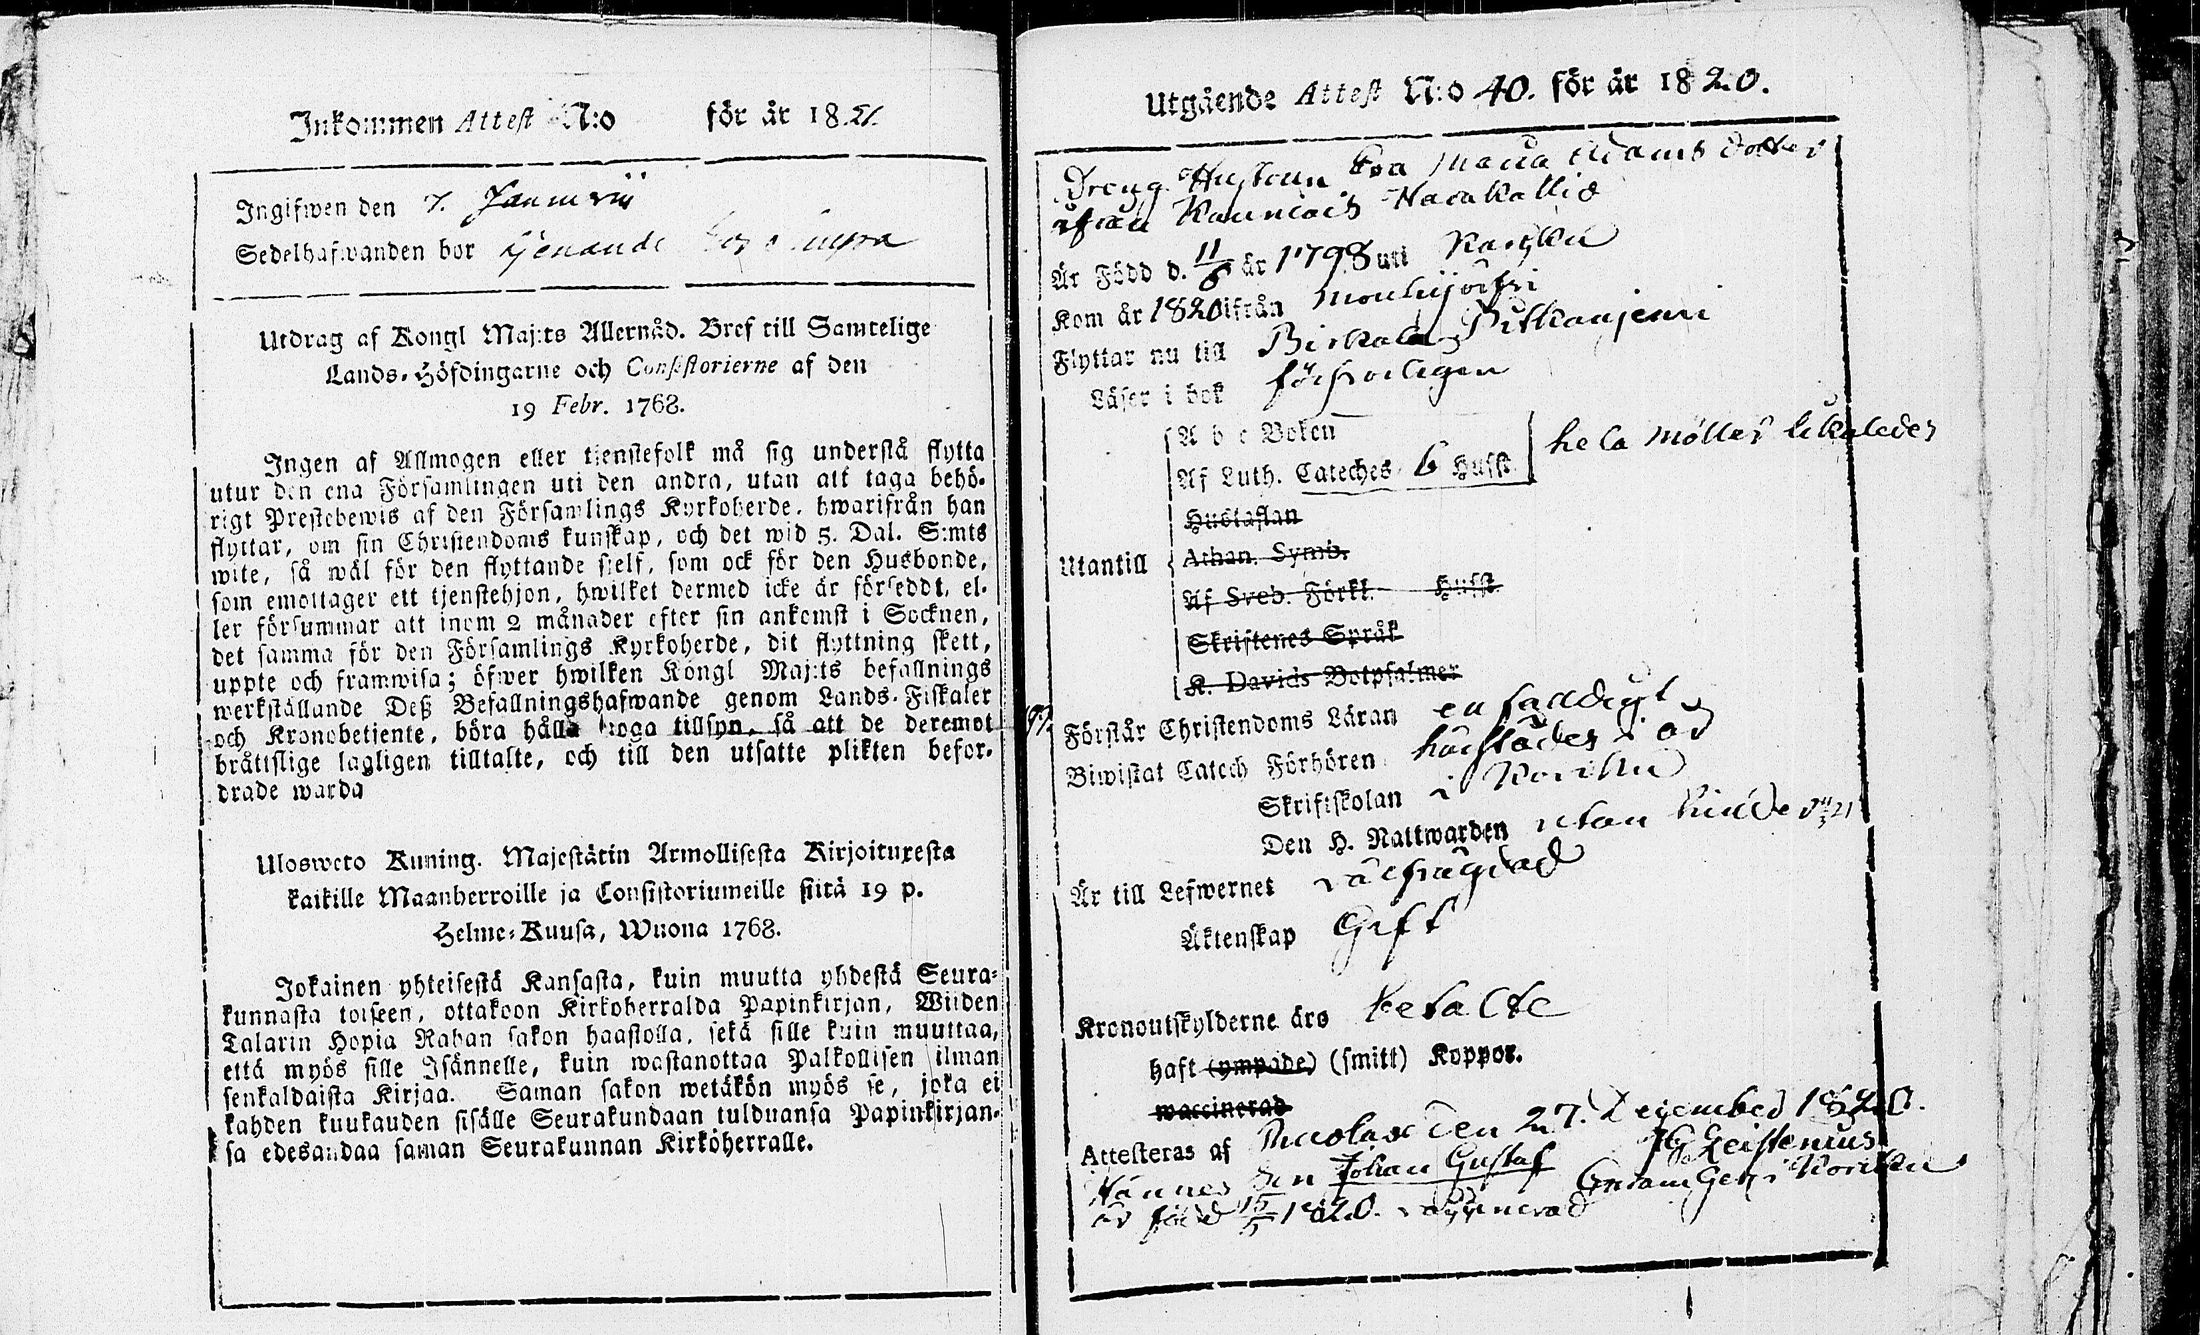 Inkommen Attest N:o för år 1821.
Ingifwen den 7. Januarii
Sedelhafwanden bor tjenande
Utdrag af Kongl Maj:ts Allernåd. Bref till Samtelige
Lands-Höfdingarne och Consistorierne af den
19 Febr. 1768.
Ingen af Allmogen eller tjenstefolk må sig understå flytta
utur den ena Församlingen uti den andra, utan att taga behö-
rigt Prestebewis af den Församlings Kyrkoherde, hwarifrån han
flyttar, om sin Christendoms kunskap, och det wid 5. Dal. S:mts
wite, så wäl för den flyttande sielf, som ock för den Husbonde,
som emottager ett tjenstehjon, hwilket dermed icke är förseddt, el-
ler försummar att inom 2 månader efter sin ankomst i Socknen,
det samma för den Församlings Kyrkoherde, dit flyttning skett,
uppte och framwisa; öfwer hwilken Kongl Maj:ts befallnings
werkställande Deß Befallningshafwande genom Lands-Fiskaler
och Kronobetjente, böra hålla noga tillsyn, så att de deremot
bråttslige lagligen tilltalte, och till den utsatte plikten befor-
drade warda
Ulosweto Kuning. Majestätin Armollisesta Kirjoituxesta
kaikille Maanherroille ja Consistoriumeille siitä 19 p.
Helme-Kuusa, Wuona 1768.
Jokainen yhteisestä Kansasta, kuin muutta yhdestä Seura-
kunnasta toiseen, ottakoon Kirkoherralda Papinkirjan, Wiiden
Talarin Hopia Rahan sakon haastolla, sekä sille kuin muuttaa,
että myös sille Isännelle, kuin wastanottaa Palkollisen ilman
senkaldaista Kirjaa. Saman sakon wetäkön myös se, joka ei
kahden kuukauden sisälle Seurakundaan tulduansa Papinkirjan-
sa edesandaa saman Seurakunnan Kirkoherralle.
Utgående Attest N:o 40. för år 1820.
Dreng Hustrun Eva Maria Adams dotter
ifrån Kauniais Harakallio
Är Född d. 11/6 år 1798 uti Karkku
Kom år 1820 ifrån Mouhijärfvi
Flyttar nu till Birkala Pitkänjemi
Läser i bok försvarligen
A b c Boken
Af Luth. Cateches 6 Hufst. hela Möller likaledes
Hustaflan
Utantill Athan. Symb.
Af Sveb. Förkl. Hufst.
Skriftenes Språk
K. Davids Botpsalmer
Förstår Christendoms Läran enfalldigt
Biwistat Catech Förhören härstädes i år
Skriftskolan i Karkku
Den H. Nattwarden utan hinder
Är till Lefwernet välfrägdad
Äktenskap Gift
Kronoutskylderne äro betalte
haft (ympade) (smitt) Koppor.
waccinerad
Attesteras af den 27. December 1820.
Hännes Son Johan Gustaf
är född 15/5 1820. vaccinerad